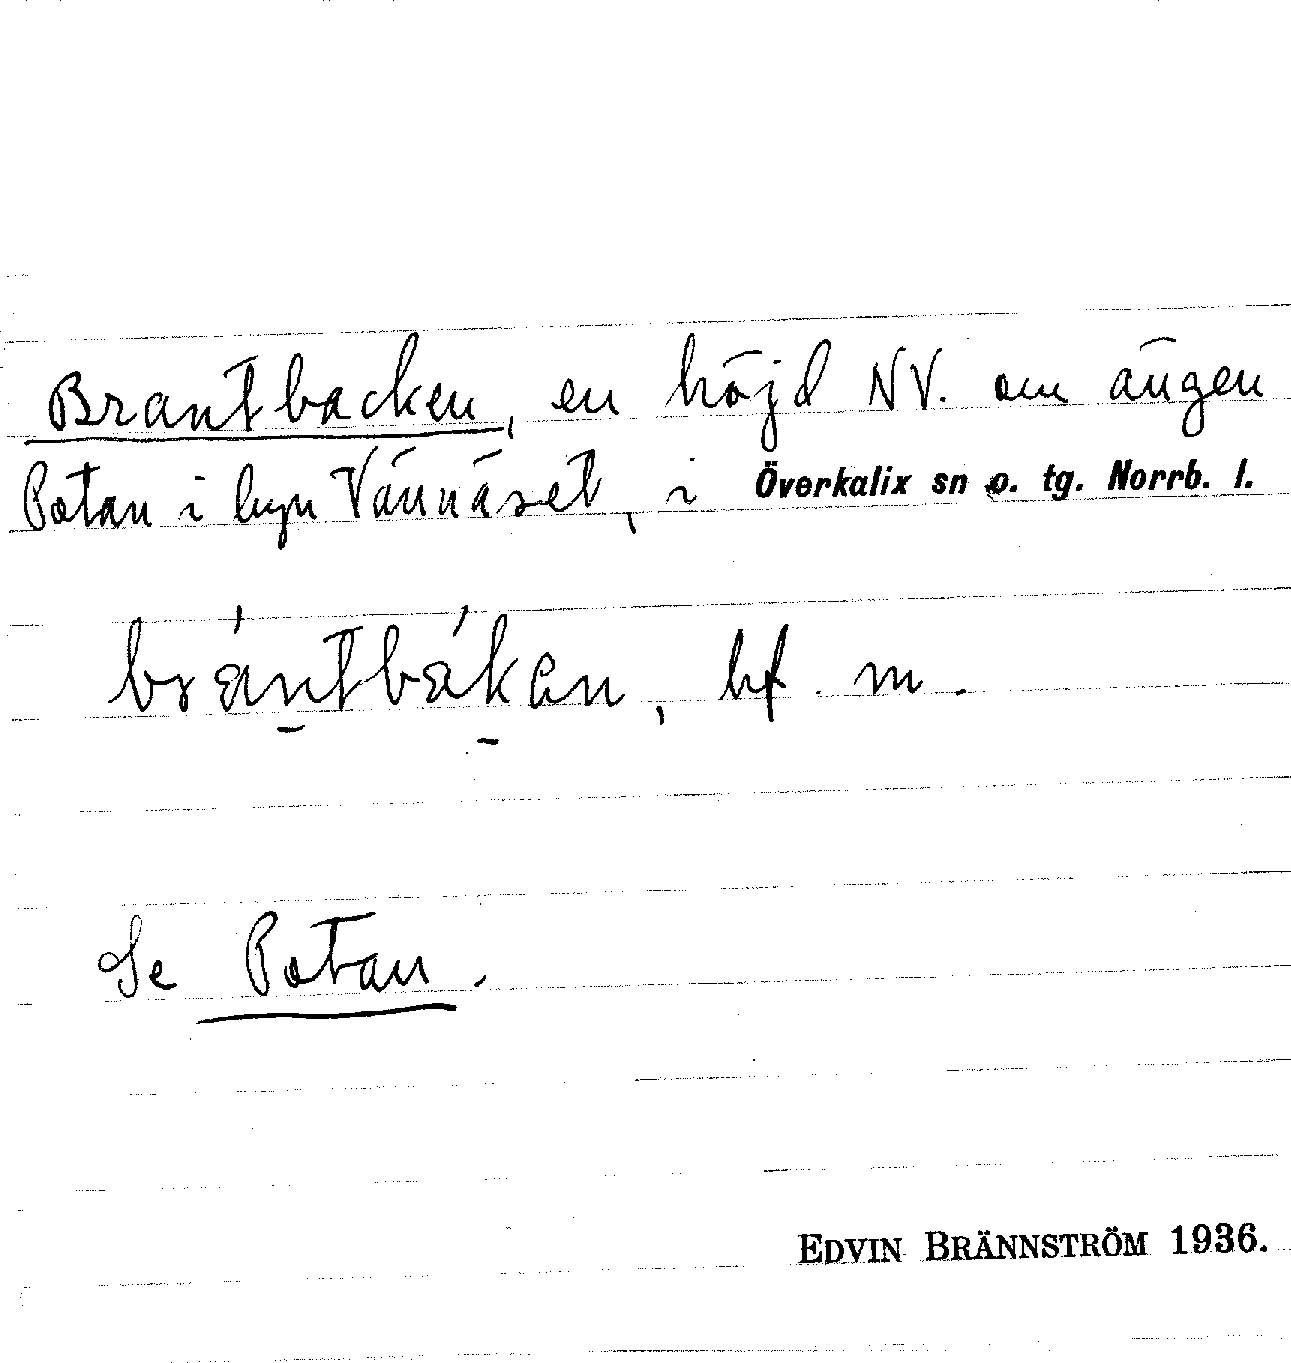 Brantbacken, en höjd NV. om ängen
Potan i byn Vännäset, i Överkalix sn o. tg. Norrb. l.
brántbáken, bf. m.
Se Potan.
EDVIN BRÄNNSTRÖM 1936.